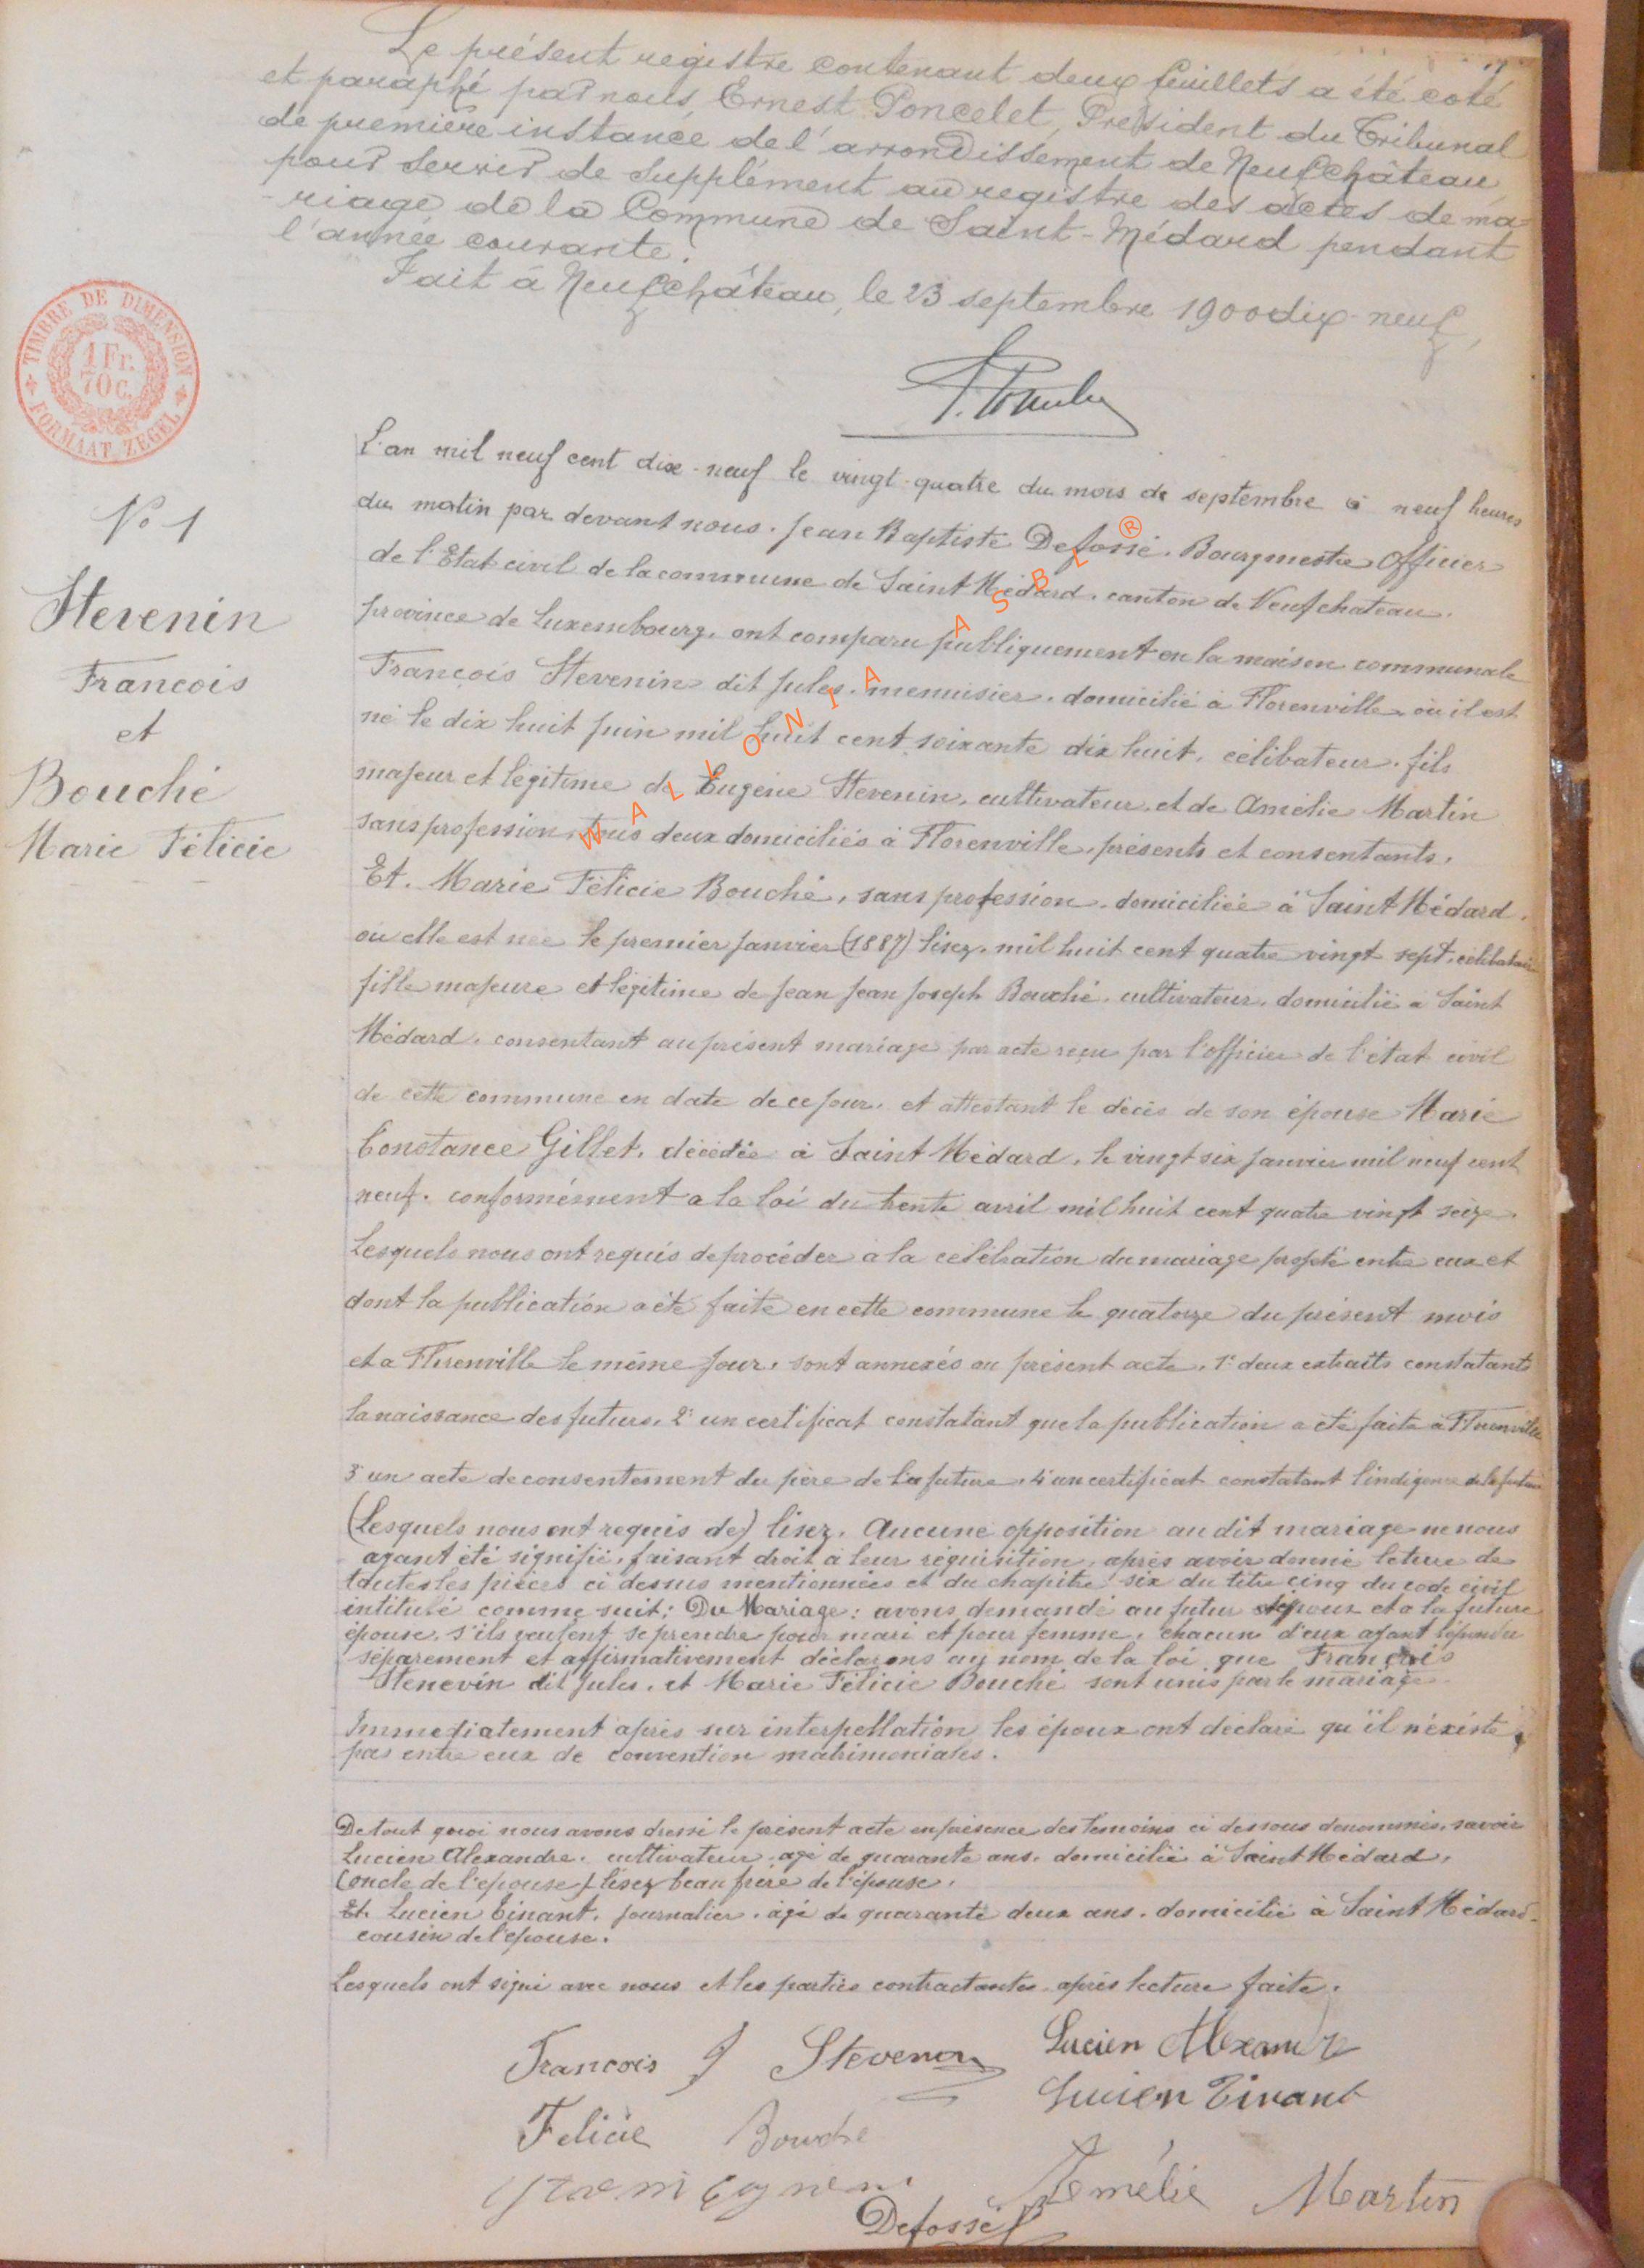 Le présent registre contenant deux feuillets a été coté
et paraphé par nous, Ernest Poncelet, Président du Tribunal
de première instance de l'arrondissement de Neufchâteau
pour servir de supplément au registre des actes de ma-
-riage de la Commune de Saint-Médard pendant
l'année courante.
Fait à Neufchâteau, le 23 septembre 1900 dix-neuf,
TIMBRE DE DIMENSION
1 Fr.
70 C.
FORMAAT ZEGEL
No 1
Stevenin
Francois
et
Bouché
Marie Félicie
L'an mil neuf cent dix-neuf le vingt-quatre du mois de septembre à neuf heures
du matin par devant nous. Jean Baptiste Defossé. Bourgmestre Officier
de l'Etat civil de la commune de Saint Médard. canton de Neufchateau.
province de Luxembourg. ont comparu publiquement en la maison communale
François Stevenin dit Jules. menuisier. domicilié à Florenville. où il est
né le dix huit juin mil huit cent soixante dix huit. célibateur. fils
majeur et légitime de Eugène Stevenin, cultivateur. et de Amélie Martin
sans profession tous deux domiciliés à Florenville, présents et consentants.
Et. Marie Félicie Bouché, sans profession. domiciliée à Saint Médard.
où elle est née le premier janvier (1887) lisez. mil huit cent quatre vingt sept. célibataire
fille majeure et légitime de Jean Jean Joseph Bouché. cultivateur. domicilié à Saint
Médard. consentant au présent mariage par acte reçu par l'officier de l'état civil
de cette commune en date de ce jour. et attestant le décès de son épouse Marie
Constance Gillet. décédée à Saint Médard, le vingt six janvier mil neuf cent
neuf. conformément a la loi du trente avril mil huit cent quatre vingt seize.
Lesquels nous ont requis de procéder à la célébration du mariage projeté entre eux et
dont la publication a été faite en cette commune le quatorze du présent mois
et a Florenville le même jour. sont annexés au présent acte. 1° deux extraits constatants
la naissance des futurs. 2° un certificat constatant que la publication a été faite à Florenville
3° un acte de consentement du père de la future. 4° un certificat constatant l'indigence de la future
(Lesquels nous ont requis de) lisez. Aucune opposition au dit mariage ne nous
ayant été signifiée, faisant droit à leur réquisition, après avoir donné lecture de
toutes les pièces ci dessus mentionnées et du chapitre six du titre cinq du code civil
intitulé comme suit: Du Mariage: avons demandé au futur époux et a la future
épouse. s'ils veulent se prendre pour mari et pour femme. chacun d'eux ayant répondu
séparement et affirmativement déclarons au nom de la loi que François
Stenevin dit Jules. et Marie Félicie Bouché sont unis par le mariage.
Immediatement après sur interpellation les époux ont déclaré qu'il n'éxiste
pas entre eux de convention matrimoniales.
De tout quoi nous avons dressé le présent acte en présence des temoins ci dessous denommés. savoir
Lucien Alexandre. cultivateur. agé de quarante ans. domicilié à Saint Médard.
(oncle de l'épouse) lisez beau frère de l'épouse.
Et Lucien Tinant. journalier. agé de quarante deux ans. domicilié à Saint Médard.
cousin de l'épouse.
Lesquels ont signé avec nous et les parties contractantes après lecture faite.
Francois J Stevenin Lucien Alexandre
Lucien Tinant
Felicie Bouche
Amélie Martin
Defossé
WALLONIA ASBL ®